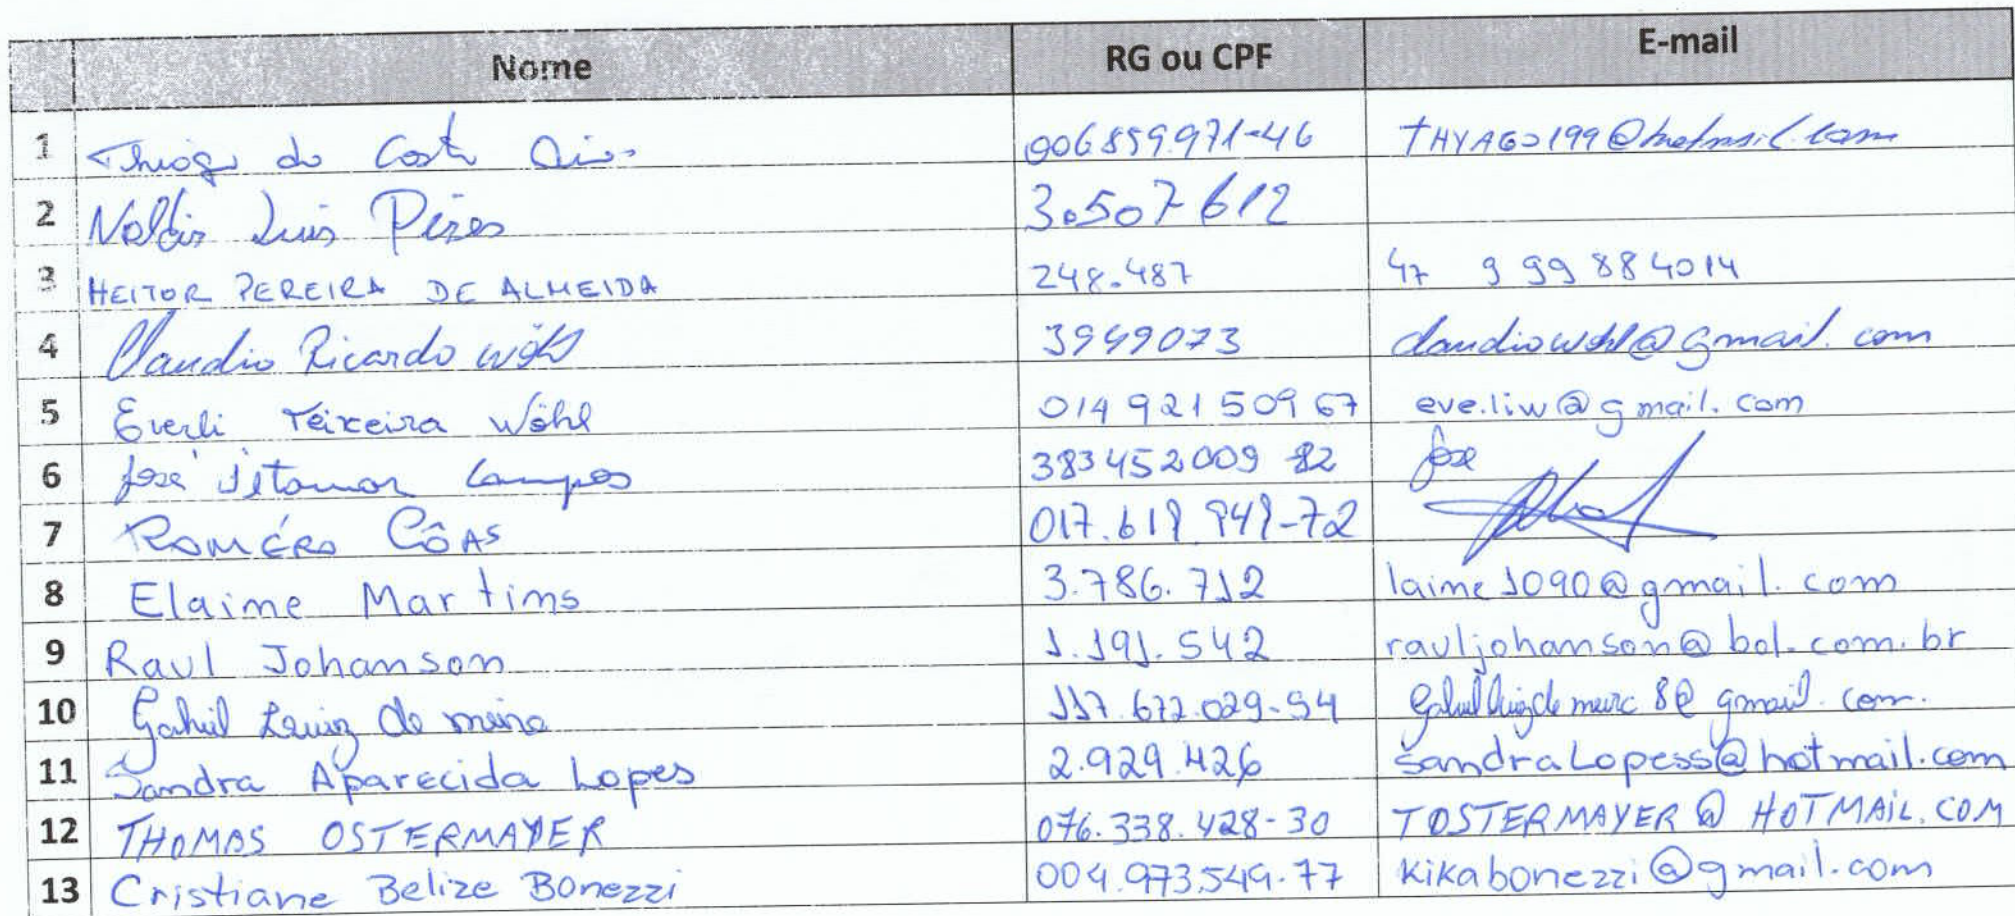 Nome RG ou CPF E-mail
1 Thiago da Costa 006859.971-46 THYAGO199@hotmail.com
2 Valdir Luis Pires 3.507612
3 HEITOR PEREIRA DE ALMEIDA 248.487 47 9 99 88 4014
4 Claudio Ricardo Wöhl 3949073 claudiowohl@gmail.com
5 Everli Teixeira Wöhl 014 921 509 67 eve.liw@gmail.com
6 José Itamar Campos 383452009 82 José
7 ROMÉRO CÔAS
8 Elaime Martims 3.786.712 laime1090@gmail.com
9 Raul Johanson 1.191.542 rauljohanson@bol.com.br
10 Luiz de 117.672.029-94
11 Sandra Aparecida Lopes 2.929.426 sandraLopess@hotmail.com
12 THOMAS OSTERMAYER 076.338.428-30 TOSTERMAYER@HOTMAIL.COM
13 Cristiane Belize Bonezzi 004.973.549.77 Kikabonezzi@gmail.com